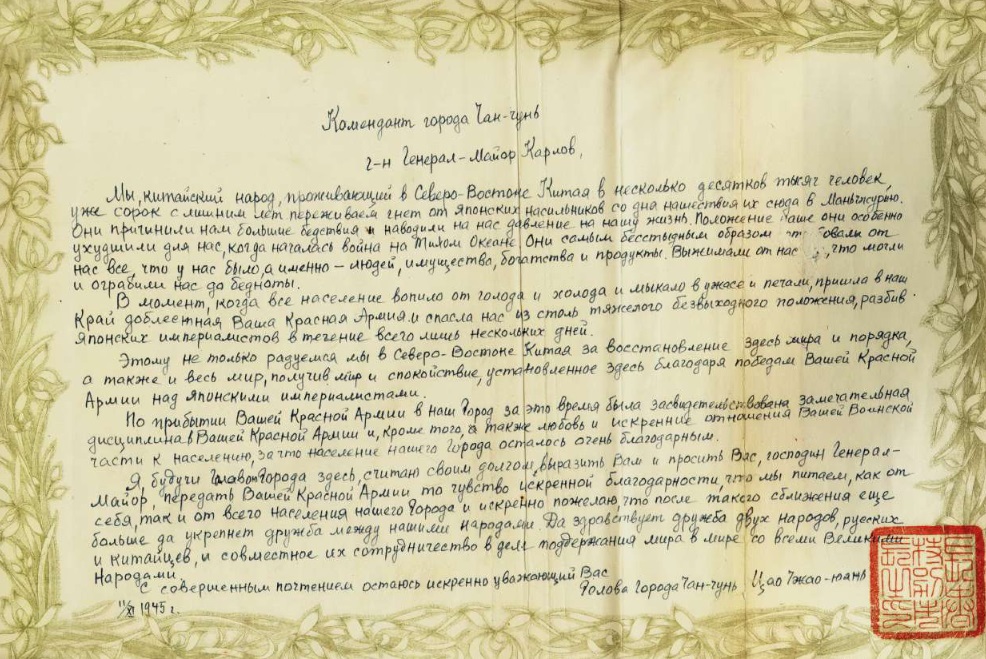 Комендант города Чан-чунь
г-н Генерал-Майор Карлов,
Мы, китайский народ, проживающий в Северо-Востоке Китая в несколько десятков тысяч человек,
уже сорок с лишним лет переживаем гнет от Японских насильников со дня нашествия их сюда в Маньчжурию.
Они причинили нам большие бедствия и наводили на нас давление на нашу жизнь. Положение наше они особенно
ухудшили для нас, когда началась война на Тихом Океане. Они самым бесстыдным образом от
нас все, что у нас было, а именно – людей, имущество, богатства и продукты. Выжимали от нас что могли
и ограбили нас до бедноты.
В момент, когда все население вопило от голода и холода и мыкало в ужасе и печали, пришла в наш
Край доблестная Ваша Красная Армия и спасла нас из столь тяжелого безвыходного положения, разбив
Японских империалистов в течение всего лишь нескольких дней.
Этому не только радуемся мы в Северо-Востоке Китая за восстановление здесь мира и порядка,
а также и весь мир, получив мир и спокойствие, установленное здесь благодаря победам Вашей Красной
Армии над Японскими империалистами.
По прибытии Вашей Красной Армии в наш Город за это время была засвидетельствована замечательная
дисциплина в Вашей Красной Армии и, кроме того, а также любовь и искренние отношения Вашей Воинской
части к населению, за что население нашего Города осталось очень благодарным.
Я, будучи Главой Города здесь, считаю своим долгом, выразить Вам и просить Вас, господин Генерал-
Майор, передать Вашей Красной Армии то чувство искренной благодарности, что мы питаем, как от
себя, так и от всего населения нашего Города и искренно пожелаю, что после такого сближения еще
больше да укрепнет дружба между нашими народами. Да здравствует дружба двух народов, русских
и китайцев, и совместное их сотрудничество в деле поддержания мира в мире со всеми Великими
Народами.
С совершенным почтением остаюсь искренно уважающий Вас
Голова Города Чан-чунь Цао Чжао-юань
11/XI 1945 г.